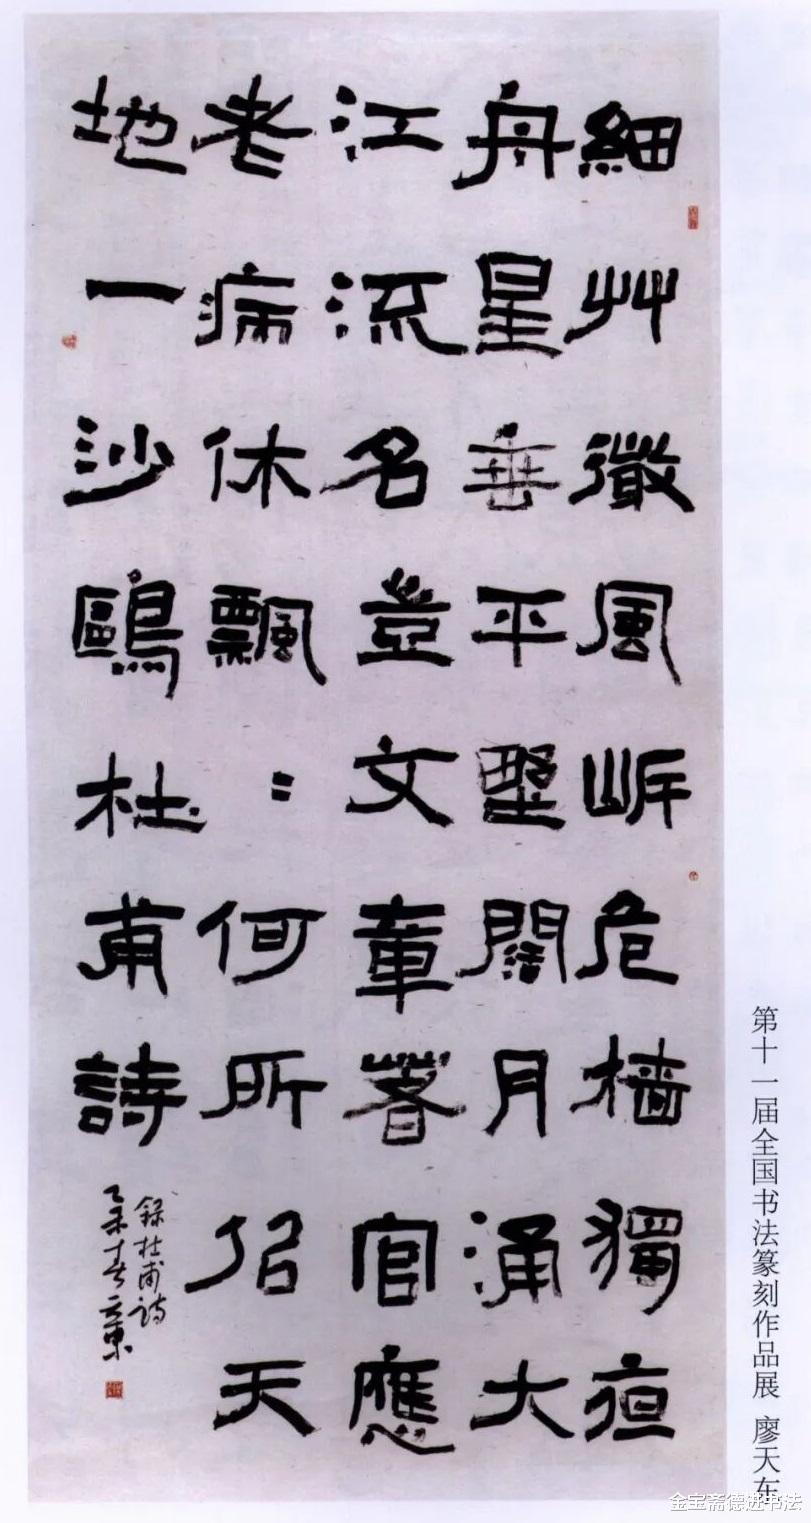 細艸微風岸危檣獨夜
舟星垂平墅闊月涌大
江流名豈文章著官應
老病休飄〻何所似天
地一沙鷗杜甫詩
錄杜甫詩
乙未春天東
第十一届全国书法篆刻作品展 廖天东
金宝斋德进书法